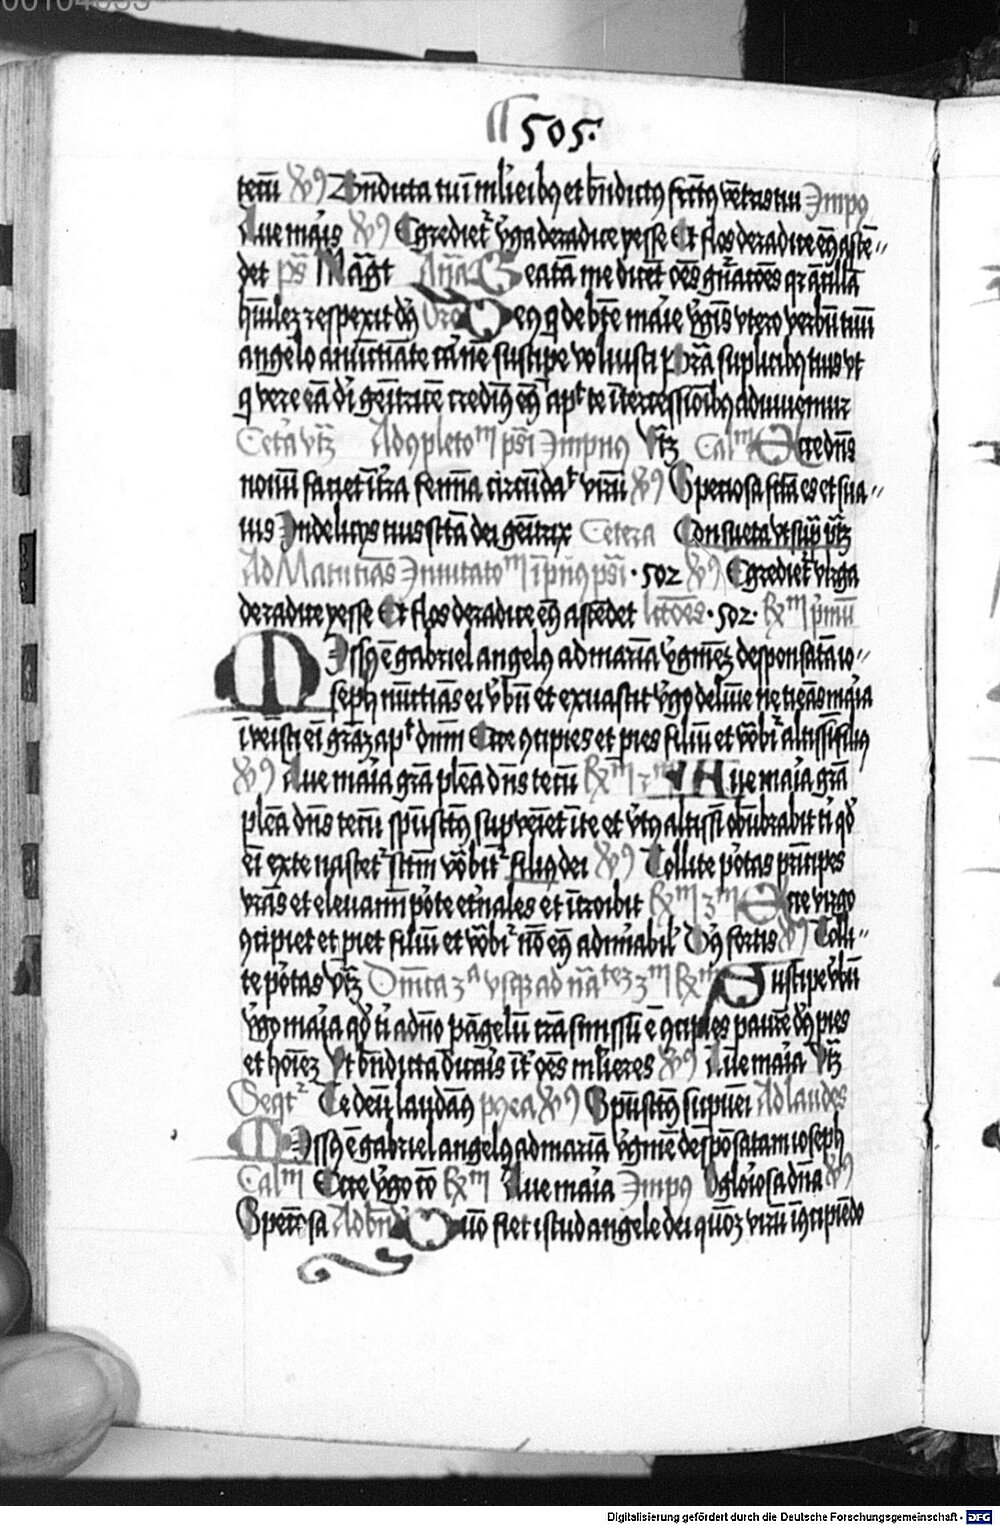 00104635
505.
tecū V Bn̄dicta tu ī mulieribꝰ et bn̄dictꝰ fructꝰ vētris tui Impꝰ
Aue maris V Egrediet᷑ v̄ga de radice yesse Et flos de radice eiꝰ ascē-
det ps̄ Mag̅t An̄a Beatā me dicēt oēs gn̄atōes qr ancillā
hūilē respexit dꝰ Orō Deꝰ q̇ de bte marie v̄gīs vtero verbū tuū
angelo annūciāte carnē suscipe voluisti p̄sta suplicibꝰ tuis vt
q̇ vere eā dei genitricē credimꝰ eiꝰ apᵗ te ītercessiōibꝰ adiuuemur
Cetera vt Ad ꝯpletoᵐ ps̄i Impnꝰ vt Calᵐ Ecce dn̄s
nouū faciet ī terra femina circūdaᵗ virū V Speciosa fcā es et sua-
uis In delicijs tuis sctā dei genitrix Cetera Consueta vt sup̄
Ad Matutinas Inuitatoᵐ īpn̄ꝰ ps̄i · 502 V Egrediet᷑ virga
de radice yesse Et flos de radice eiꝰ ascēdet lectōes · 502 · Rᵐ p̄mū
Missꝰ ē gabriel angelꝰ ad mariā v̄ginē desponsatā io-
seph nūctiās ei v̄bū et expauescit v̄go de lumīe ne timeas maria
īuenisti ei grāz apᵗ dn̄m Ecce ꝯcipies et paries filiū et vocabit᷑ altissī filiꝰ
V Aue maria grā plēa dn̄s tecū Rᵐ 2ᵐ Aue maria grā
plēa dn̄s tecū sp̄ūsctꝰ supveniet ī te et v̄tꝰ altissī obūbrabit ti qd
eī ex te nascet᷑ sctm vocabit᷑ filiꝰ dei V Tollite portas p̄ncipes
vrās et eleuamī porte eternales et ītroibit Rᵐ 3ᵐ Ecce virgo
ꝯcipiet et pariet filiū et vocabit᷑ nō eiꝰ admirabilꝭ Dꝰ fortis V Tolli-
te portas vt Suscipe v̄bū
v̄go maria qd ti a dn̄o p angelū trāsmissū ē ꝯcipies paries dꝰ paries
et hoīez Vt bn̄dicta dicaris īt oēs mulieres V Aue maria vt
Seqt᷑ Te deū laudamꝰ V Sp̄ūsctꝰ supueni Ad laudes
Missꝰ ē gabriel angelꝰ ad mariā v̄ginē desponsatam ioseph
Calᵐ Ecce v̄go cō Rᵐ Aue maria Impꝰ O gloriosa dn̄a V
Speciosa Ad bn̄ Quō fiet istud angele dei quōz virū ī ꝯcipiēdo
Digitalisierung gefördert durch die Deutsche Forschungsgemeinschaft - DFG